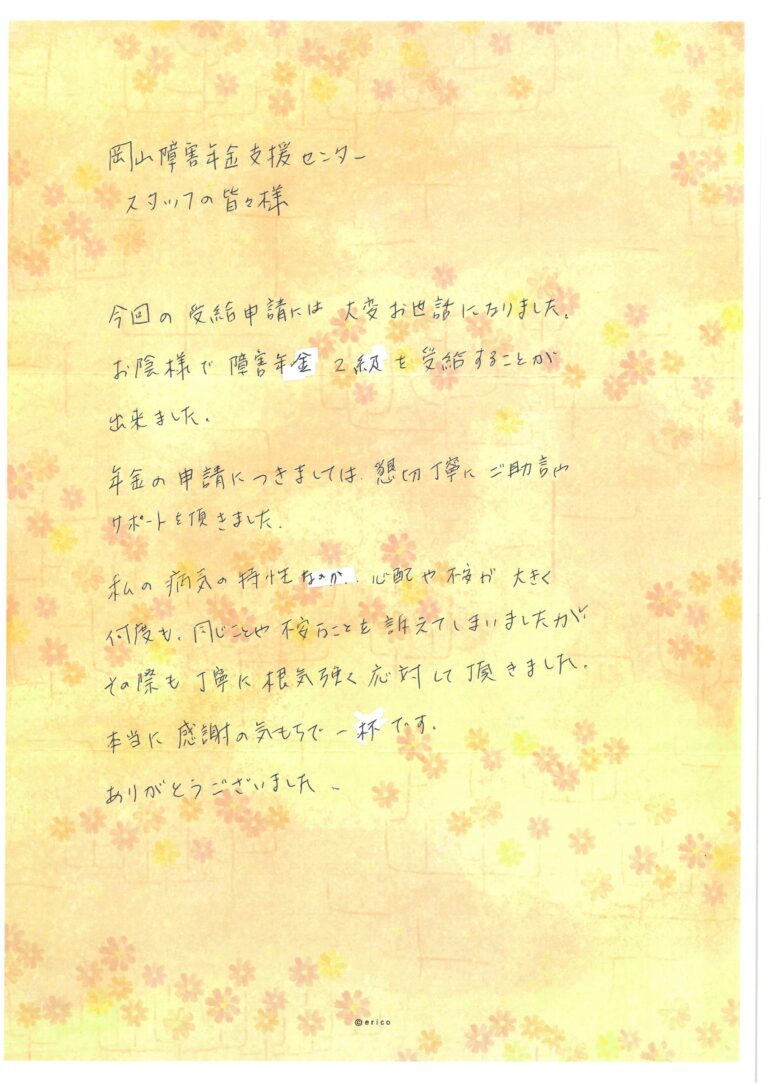 岡山障害年金支援センター
スタッフの皆々様
今回の受給申請には大変お世話になりました。
お陰様で障害年金2級を受給することが
出来ました。
年金の申請につきましては、懇切丁寧にご助言や
サポートを頂きました。
私の病気の特性なのか、心配や不安が大きく
何度も、同じことや不安なことを訴えてしまいましたが、
その際も丁寧に根気強く応対して頂きました。
本当に感謝の気もちで一杯です。
ありがとうございました。
©erico